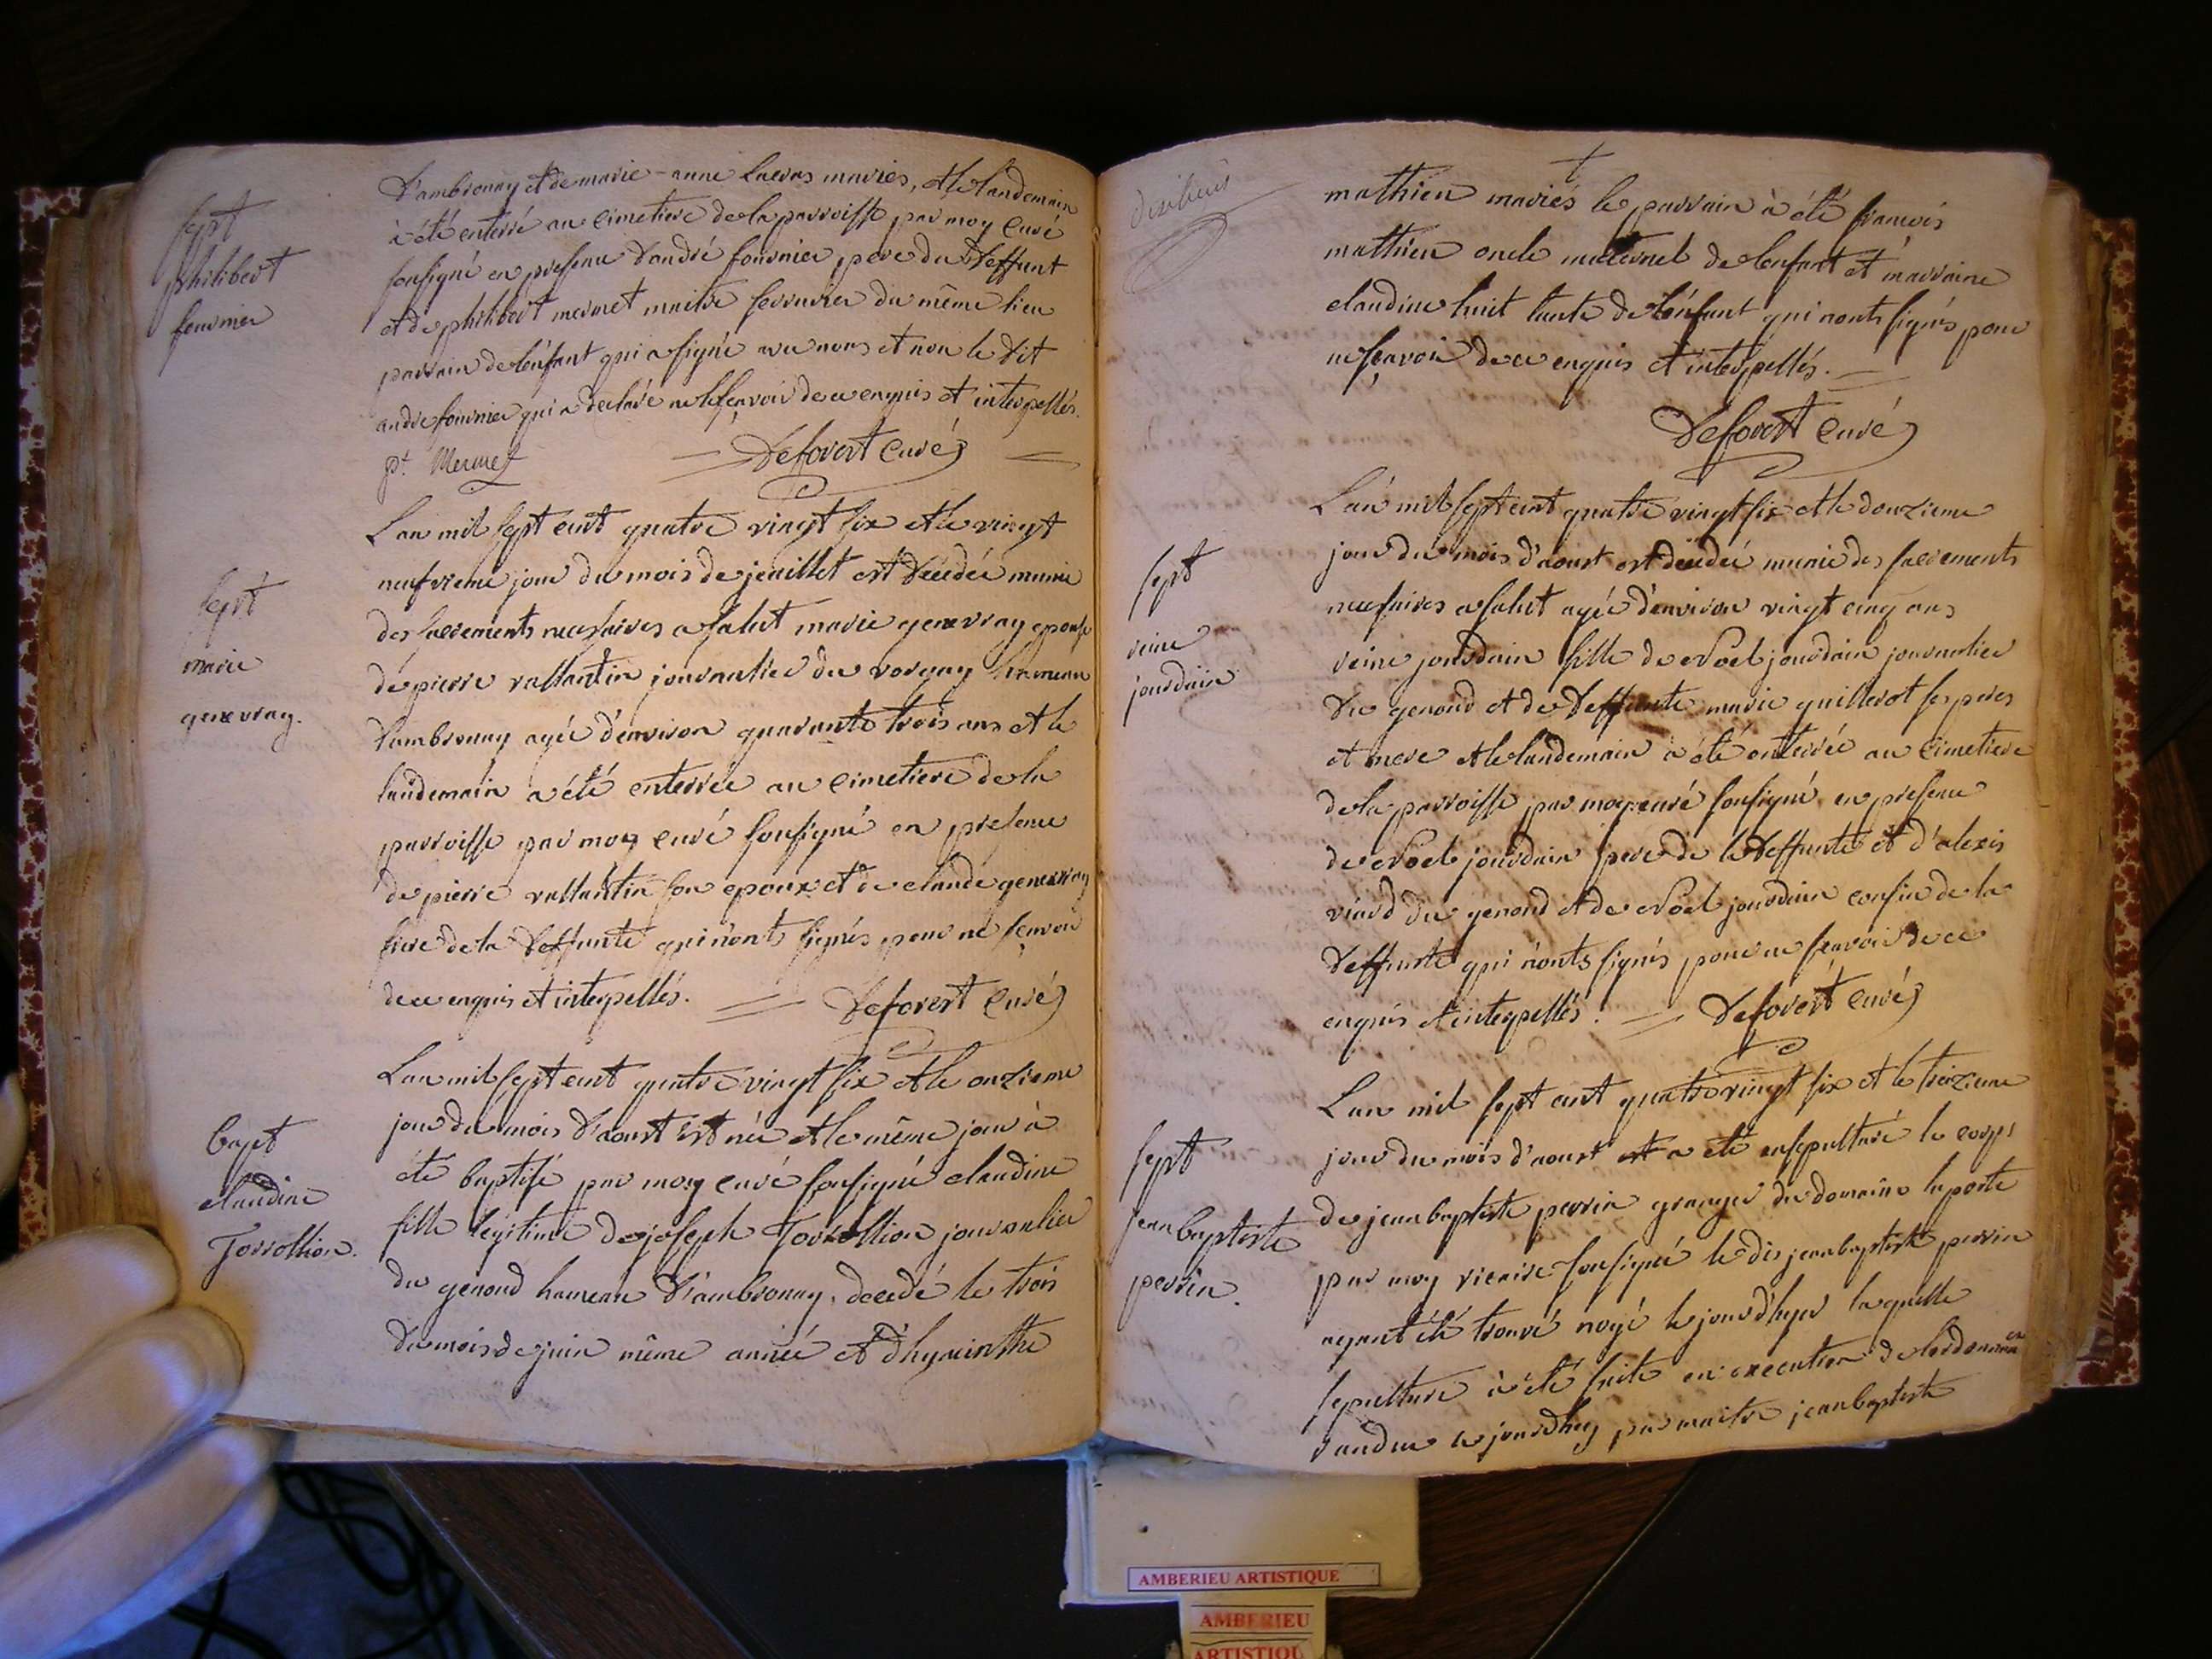 sept
philibert
fournier
d'ambronay et de marie-anne lacras mariés, et le landemain
à été enterré au cimetiere de la parroisse par moy curé
sousigné en presence d'andré fournier pere du deffunt
et de philibert mermet maitre serrurier du même lieu
parrain de lenfant qui a signé avec nous et non le dit
andre fournier qui a declaré ne le sçavoir de ce enquis et interpellés.
pt. Mermet
Deforest curé
sept
marie
genevray.
L'an mil sept cent quatre vingt six et le vingt
neufvieme jour du mois de jeuillet est décédée munie
des sacrements necessaires a salut marie genevray epouse
de pierre vallantin journalier du vorgay hameau
d'ambronay agée d'environ quarante trois ans et le
landemain a été enterrée au cimetiere de la
parroisse par moy curé sousigné en presence
de pierre vallantin son epoux et de claude genevray
frere de la deffunte qui n'ont signés pour ne sçavoir
de ce enquis et interpellés.
Deforest curé
bapt
claudine
Torrollion.
L'an mil sept cent quatre vingt six et le onzieme
jour du mois d'aoust est née et le même jour à
été baptisé par moy curé sousigné claudine
fille légitime de joseph Torrollion journalier
du genoud hameau d'ambronay, décédé le trois
du mois de juin même année et d'hyacinthe
mathieu mariés le parrain à été francois
mathieu oncle maternel de lenfant et marraine
claudine huit tante de l'enfant qui nonts signés pour
ne sçavoir de ce enquis et interpellés.
Deforest curé
sept
reine
jourdain
L'an mil sept cent quatre vingt six et le douzieme
jour du mois d'aoust est décédée munie des sacrements
necessaires a salut agée d'environ vingt cinq ans
reine jourdain fille de Noel jourdain journalier
du genoud et de deffunte marie guillerot ses peres
et mere et le landemain à été enterrée au cimetiere
de la parroisse par moy curé sousigné en presence
de Noel jourdain pere de la deffunte et d'alexis
viard du genoud et de Noel jourdain cousin de la
deffunte qui n'onts signés pour ne sçavoir de ce
enquis et interpellés.
Deforest curé
sept
jean baptiste
perrin.
L'an mil sept cent quatre vingt six et le treizieme
jour du mois d'aoust est a été ensepulturé le corps
de jean baptiste perrin granger du domaine laporte
par moy vicaire sousigné le dis jean baptiste perrin
ayant été trouvé noyé le jour d'hyer laquelle
sepulture à été faite en execution de lordonnance
randue ce jourdhuy par maitre jean baptiste
AMBERIEU ARTISTIQUE
AMBERIEU
ARTISTIQU